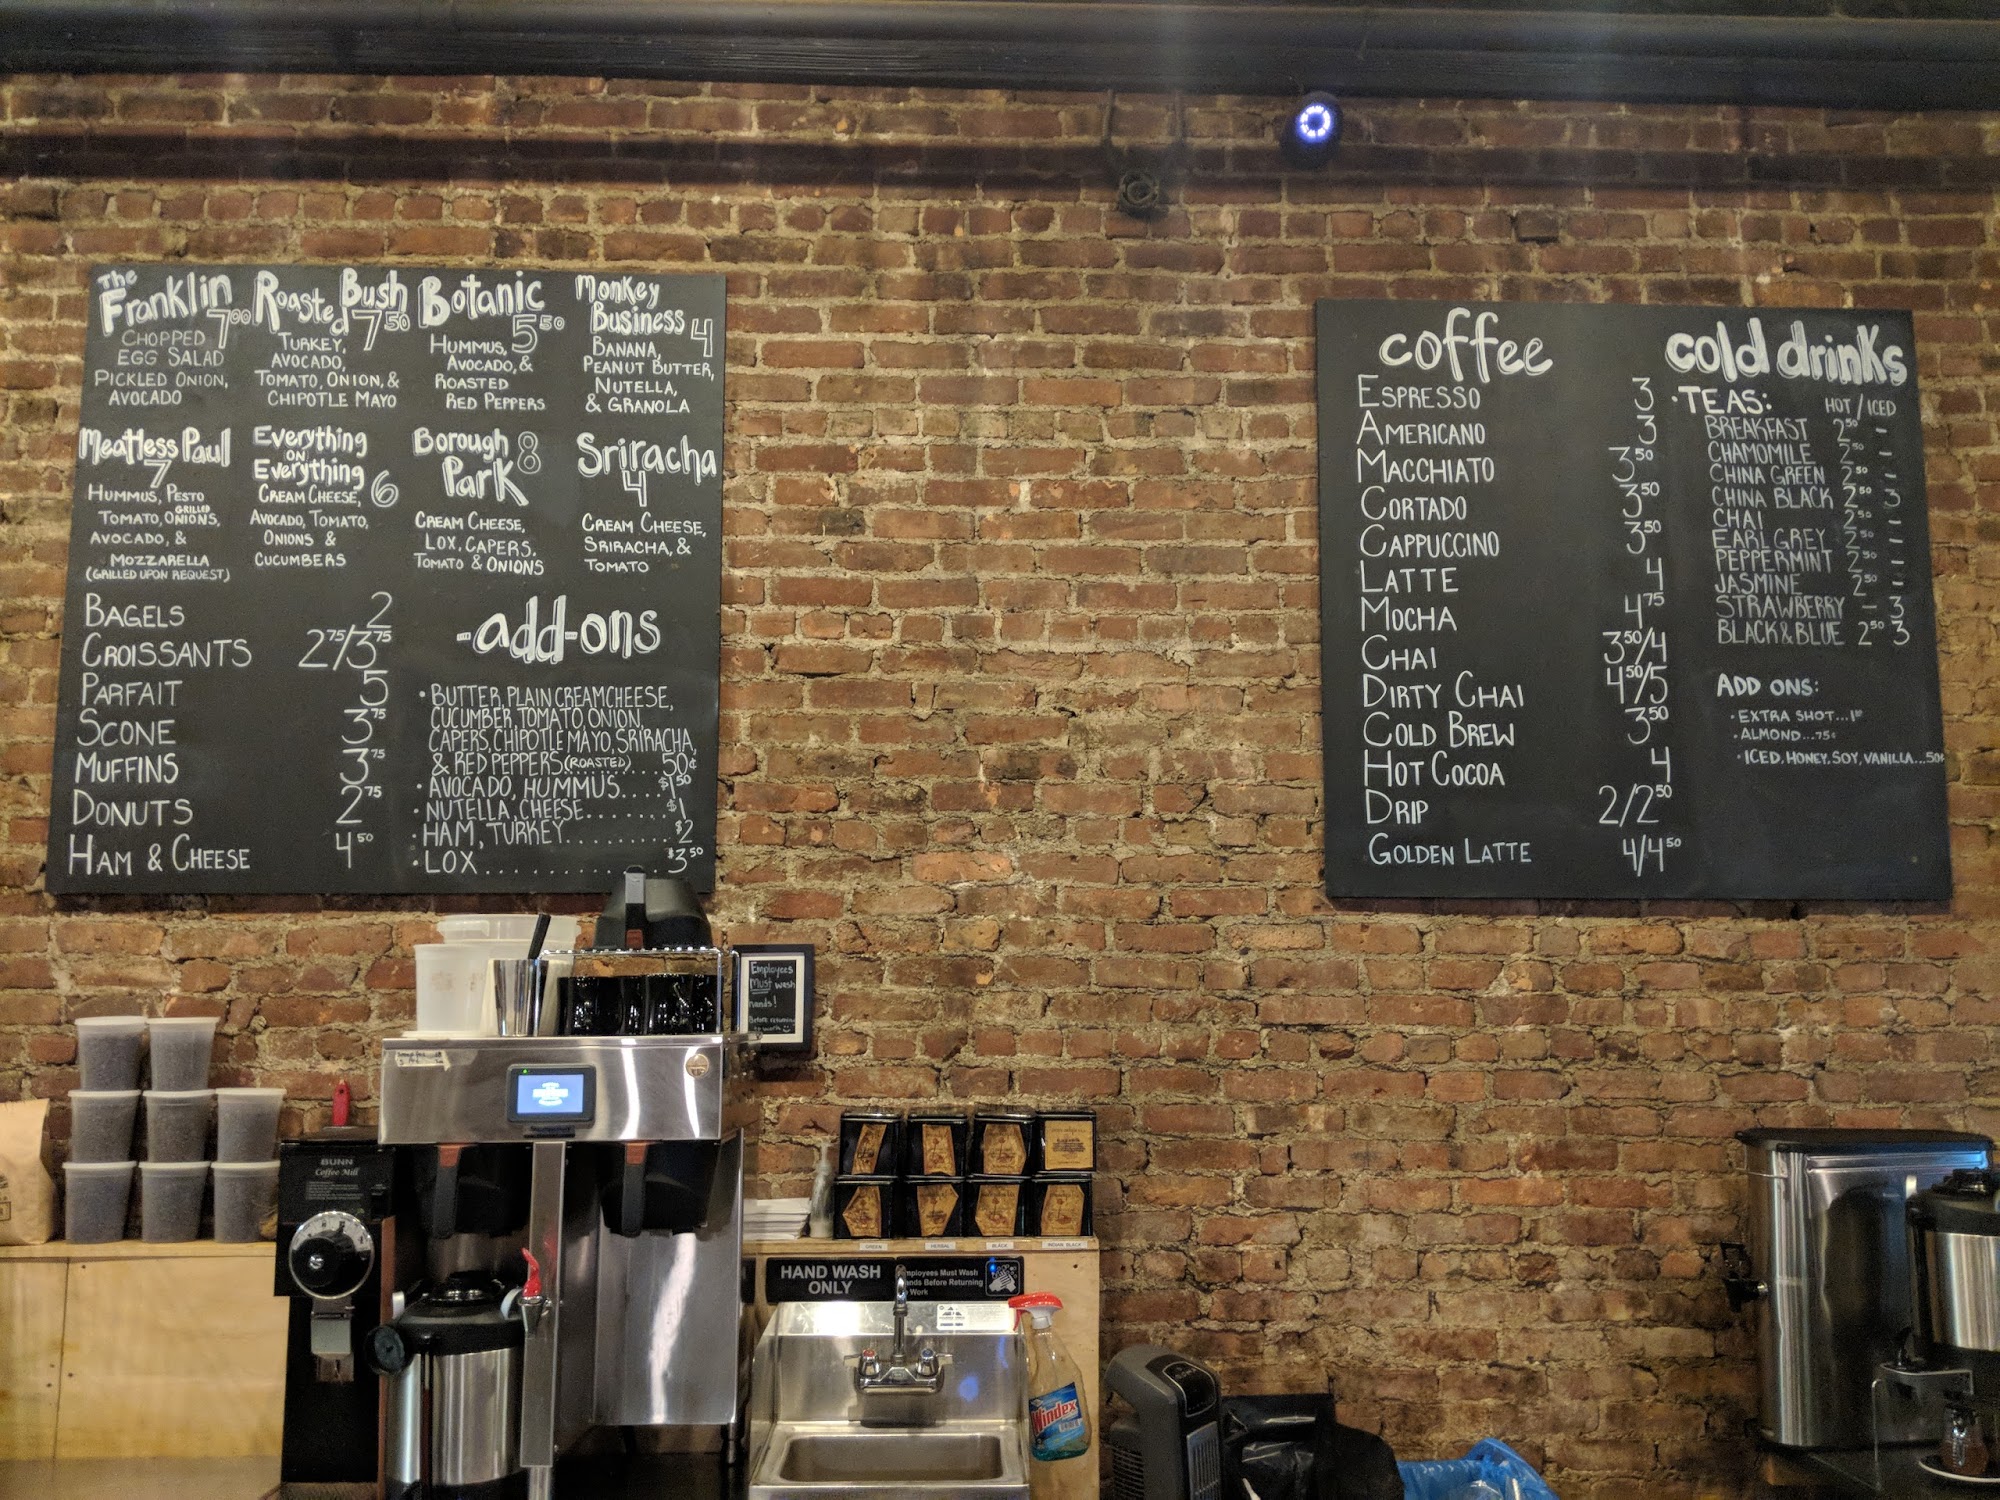 The
Franklin 7 00
CHOPPED
EGG SALAD
PICKLED ONION,
AVOCADO
Roasted Bush
7 50
TURKEY,
AVOCADO,
TOMATO, ONION, &
CHIPOTLE MAYO
Botanic
5 50
HUMMUS,
AVOCADO, &
ROASTED
RED PEPPERS
Monkey
Business 4
BANANA,
PEANUT BUTTER,
NUTELLA,
& GRANOLA
Meatless Paul
7
HUMMUS, PESTO
GRILLED
TOMATO, ONIONS,
AVOCADO, &
MOZZARELLA
(GRILLED UPON REQUEST)
Everything
ON
Everything 6
CREAM CHEESE,
AVOCADO, TOMATO,
ONIONS &
CUCUMBERS
Borough 8
Park
CREAM CHEESE,
LOX, CAPERS,
TOMATO & ONIONS
Sriracha
4
CREAM CHEESE,
SRIRACHA, &
TOMATO
BAGELS 2
CROISSANTS 2 75/3 75
PARFAIT 5
SCONE 3 75
MUFFINS 3 75
DONUTS 2 75
HAM & CHEESE 4 50
-add-ons
• BUTTER, PLAIN CREAM CHEESE,
CUCUMBER, TOMATO, ONION,
CAPERS, CHIPOTLE MAYO, SRIRACHA,
& RED PEPPERS (ROASTED) .... 50¢
• AVOCADO, HUMMUS.... $1 50
• NUTELLA, CHEESE....... $1
• HAM, TURKEY.......... $2
• LOX............ $3 50
coffee
ESPRESSO 3
AMERICANO 3
MACCHIATO 3 50
CORTADO 3 50
CAPPUCCINO 3 50
LATTE 4
MOCHA 4 75
CHAI 3 50/4
DIRTY CHAI 4 50/5
COLD BREW 3 50
HOT COCOA 4
DRIP 2/2 50
GOLDEN LATTE 4/4 50
cold drinks
• TEAS: HOT / ICED
BREAKFAST 2 50 -
CHAMOMILE 2 50 -
CHINA GREEN 2 50 -
CHINA BLACK 2 50 3
CHAI 2 50 -
EARL GREY 2 50 -
PEPPERMINT 2 50 -
JASMINE 2 50 -
STRAWBERRY - 3
BLACK & BLUE 2 50 3
ADD ONS:
• EXTRA SHOT...1
• ALMOND...75¢
• ICED, HONEY, SOY, VANILLA...50¢
Employees
Must wash
hands!
Before returning
to work
BUNN
Coffee Mill
GREEN
HERBAL
BLACK
INDIAN BLACK
HAND WASH
ONLY
Employees Must Wash
Hands Before Returning
Work
Windex